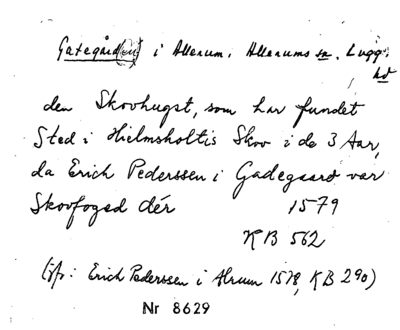 Gategård(en) i Allerum. Allerums sn. Lugg.
hd
den Skovhugst, som har fundet
Sted i Hielmsholtis Skov i de 3 Aar,
da Erich Pederssen i Gadegaard var
Skovfoged dér 1579
KB 562
(jfr: Erich Pederssen i Alrum 1578, KB 290)
Nr 8629